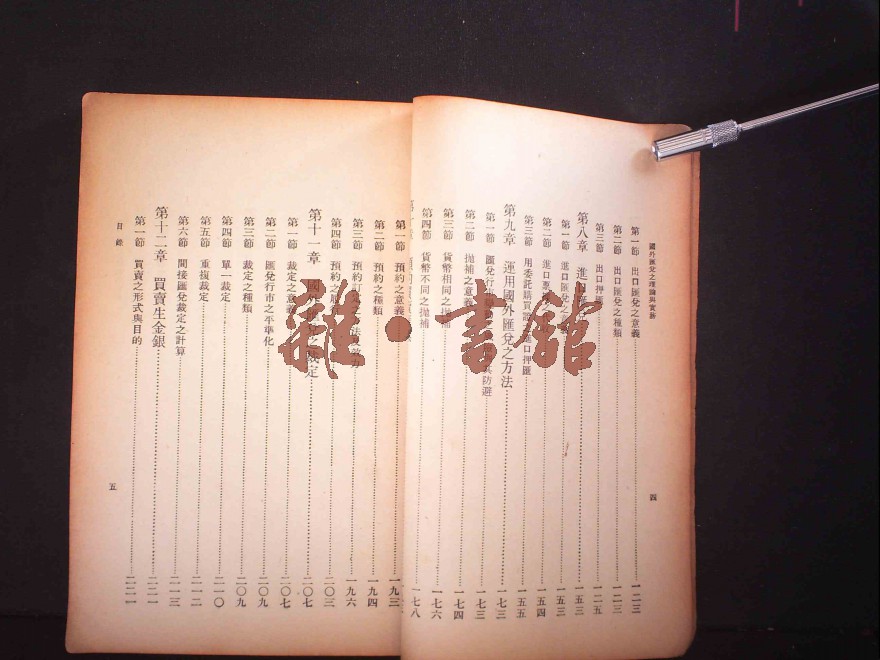 國外匯兌之理論與實務
第一節 出口匯兌之意義 一二三
第二節 出口匯兌之種類 一二三
第三節 出口押匯 一二五
第八章 進口匯 一五三
第一節 進口匯兌之意 一五三
第二節 進口票 一五四
第三節 用委託購買證 進口押匯 一五五
第九章 運用國外匯兌之方法 一七三
第一節 匯兌行 其防避 一七三
第二節 拋補之意義 一七四
第三節 貨幣相同之拋補 一七六
第四節 貨幣不同之拋補 一七八
四
第一節 預約之意義 一九三
第二節 預約之種類 一九四
第三節 預約訂定之 法 效力 一九六
第四節 預約之 二〇三
第十一章 國外匯兌之裁定 二〇七
第一節 裁定之意義 二〇七
第二節 匯兌行市之平準化 二〇九
第三節 裁定之種類 二〇九
第四節 單一裁定 二一〇
第五節 重複裁定 二一二
第六節 間接匯兌裁定之計算 二一三
第十二章 買賣生金銀 二二一
第一節 買賣之形式與目的 二二一
目錄
五
雜·書館